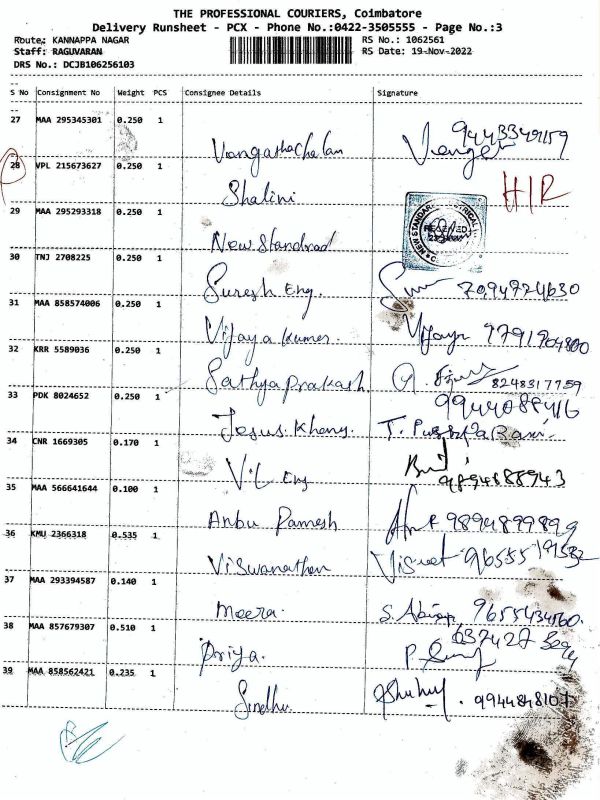 THE PROFESSIONAL COURIERS, Coimbatore
Delivery Runsheet - PCX - Phone No.:0422-3505555 - Page No.:3
Route: KANNAPPA NAGAR
RS No.: 1062561
Staff: RAGUVARAN
RS Date: 19-Nov-2022
DRS No.: DCJB106256103
S No Consignment No Weight PCS Consignee Details Signature
27 MAA 295345301 0.250 1
9443349159
Vengathachalam
28 VPL 215673627 0.250 1
H/R
Shalini
29 MAA 295293318 0.250 1
RECEIVED
New Standrad
30 TNJ 2708225 0.250 1
Suresh Eng. 7094724630
31 MAA 858574006 0.250 1
Vijaya kumer. Vijaya 9791904800
32 KRR 5589036 0.250 1
Sathya Prakash 8248317759
33 PDK 8024652 0.250 1
9944088416
Jesus. Kheny. T. Pushpa Rani.
34 CNR 1669305 0.170 1
V.L Eng 9894688943
35 MAA 566641644 0.100 1
Anbu Ramesh 9894899899
36 KMU 2366318 0.535 1
Viswanathan 96555
37 MAA 293394587 0.140 1
Meera. 9655434560.
38 MAA 857679307 0.510 1
Priya.
39 MAA 858562421 0.235 1
Sindhu. 9944848107